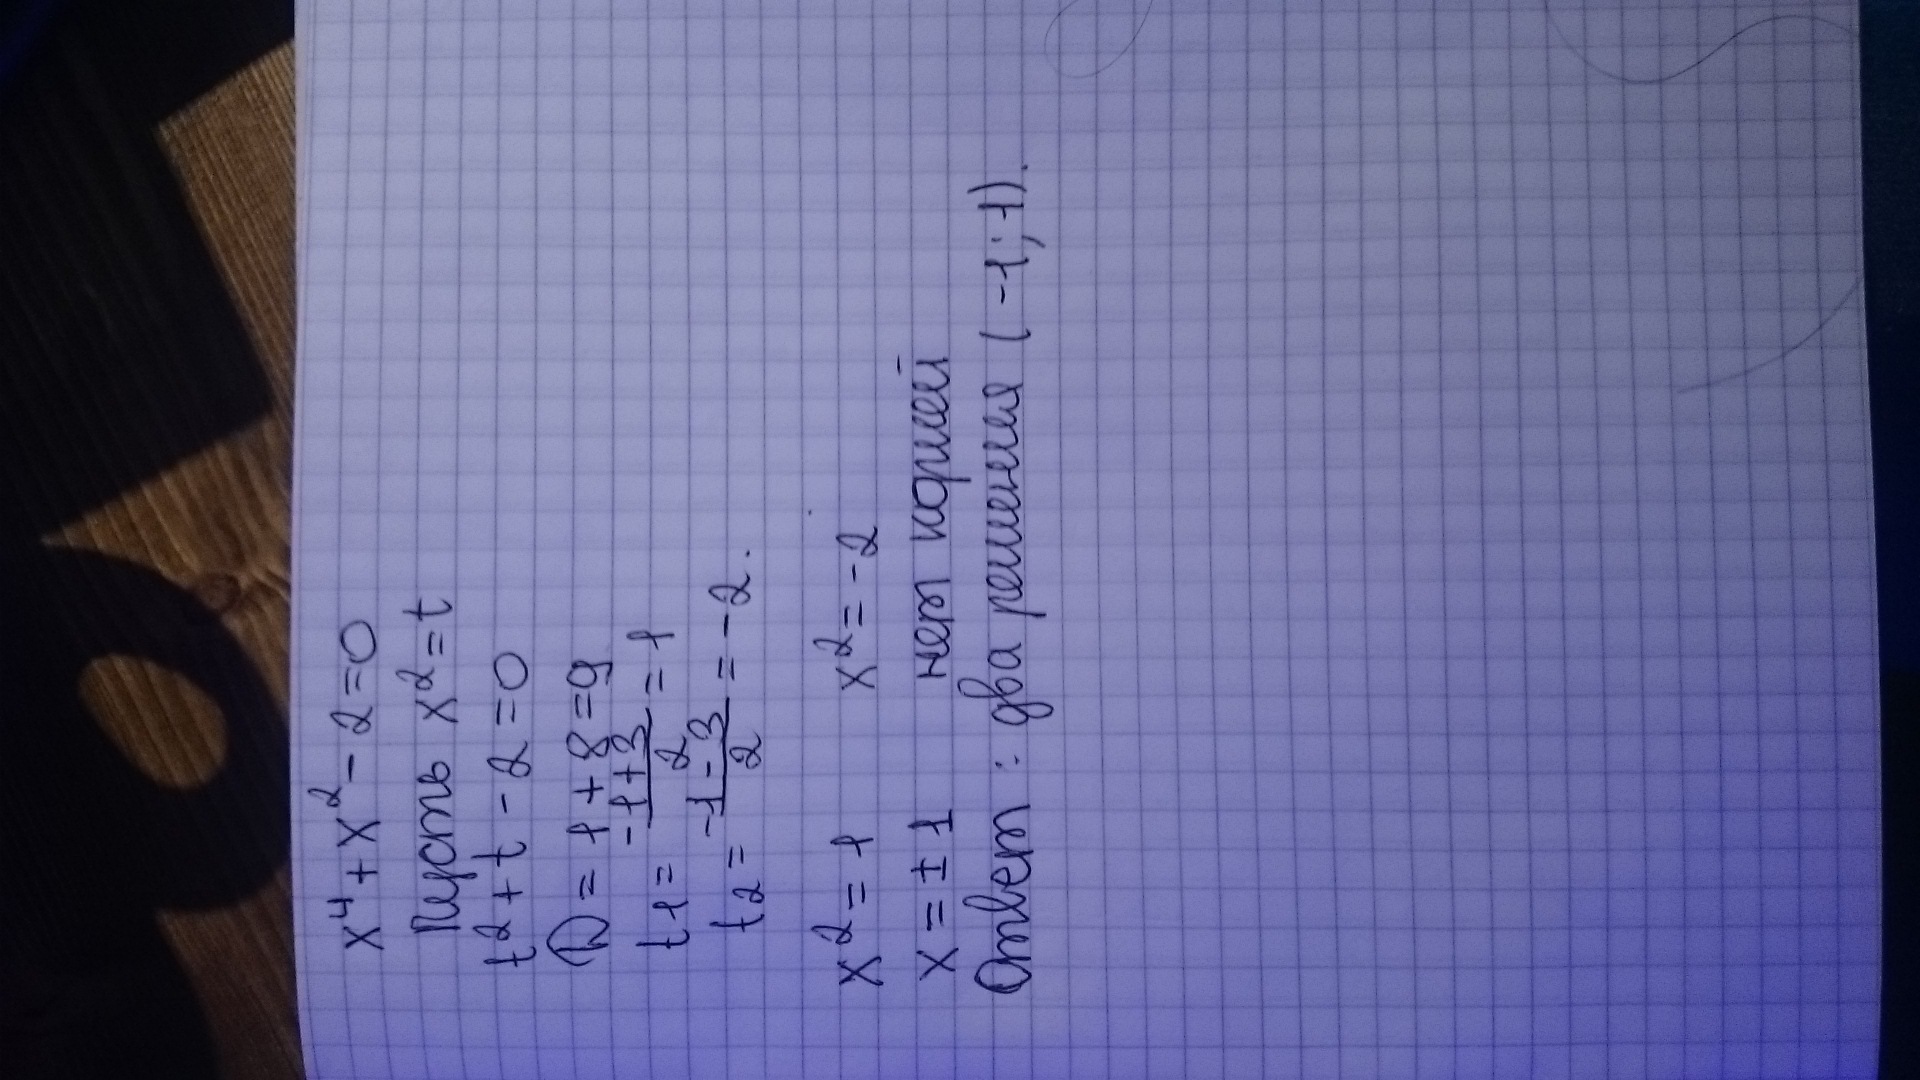 x⁴+x²-2=0
Пусть x²=t
t²+t-2=0
D=1+8=9
t₁=(-1+3)/2=1
t₂=(-1-3)/2=-2.
x²=1 x²=-2
x=±1 нет корней
Ответ: два решения (-1; 1).